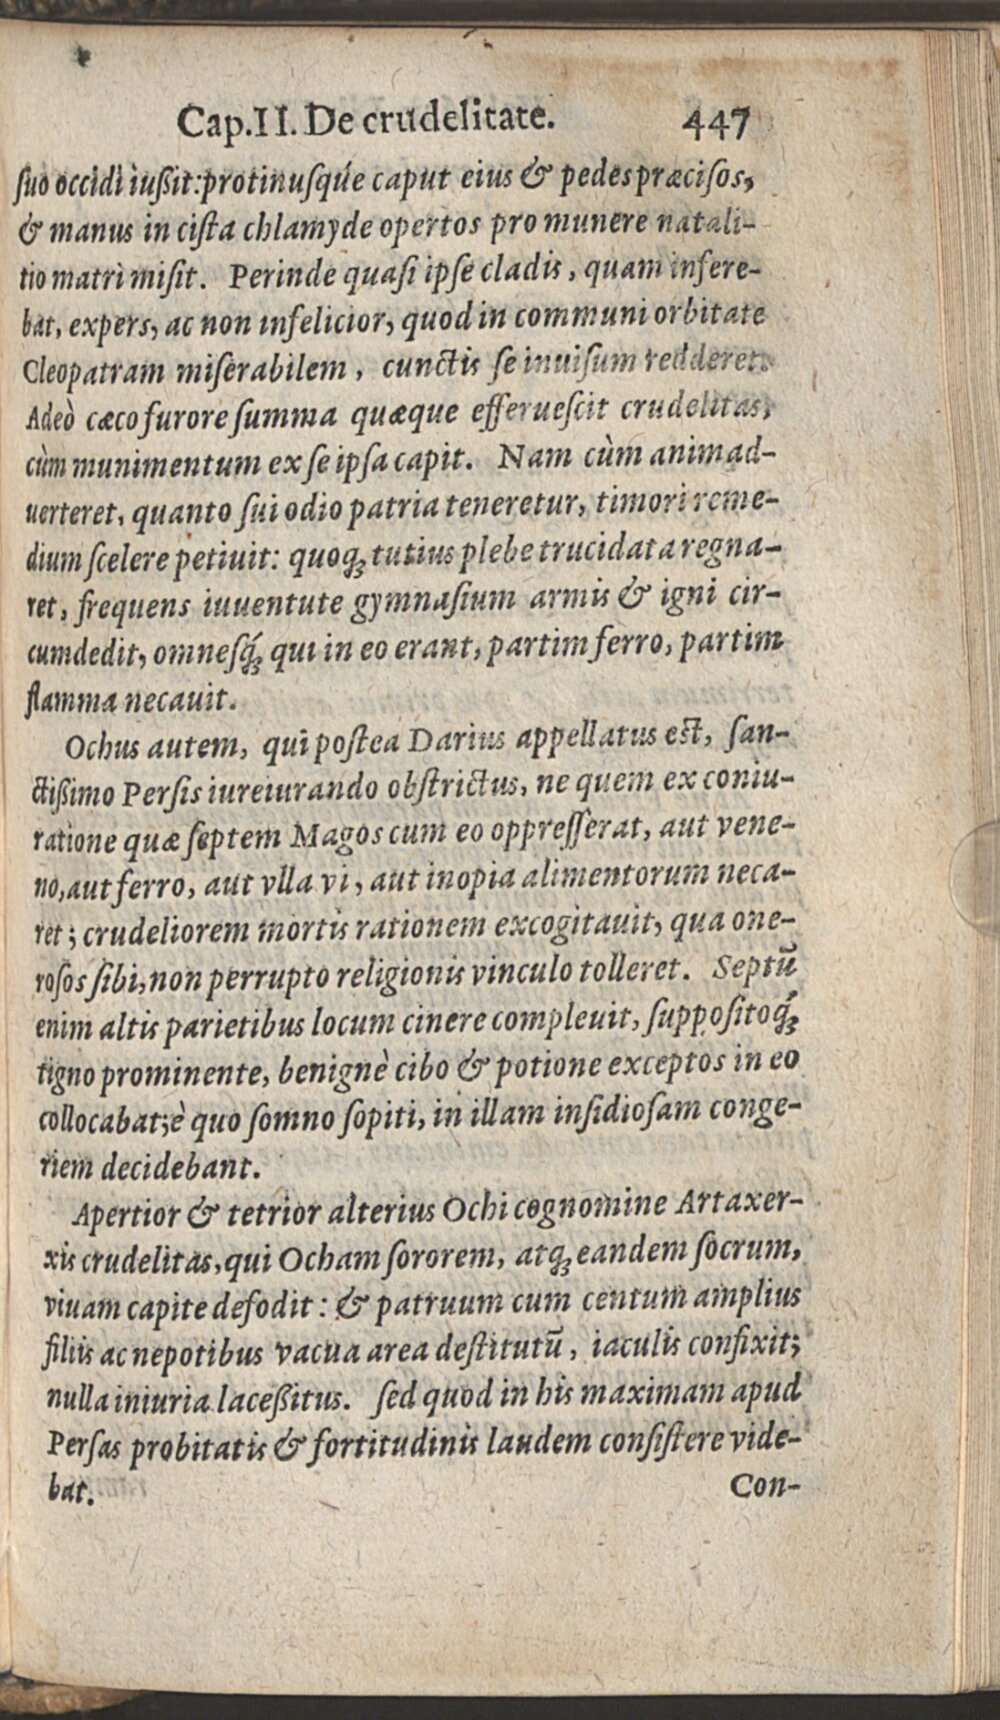 Cap.II. De crudelitate. 447
ſuo occidi iußit: protinuſqúe caput eius & pedes præciſos,
& manus in ciſta chlamyde opertos pro munere natali-
tio matri miſit. Perinde quaſi ipſe cladis, quam inſere-
bat, expers, ac non infelicior, quod in communi orbitate
Cleopatram miſerabilem, cunctis ſe inuiſum redderet.
Adeò cæco furore ſumma quæque efferueſcit crudelitas,
cùm munimentum ex ſe ipſa capit. Nam cùm animad-
uerteret, quanto ſui odio patria teneretur, timori reme-
dium ſcelere petiuit: quoq́ꝫ tutius plebe trucidata regna-
ret, frequens iuuentute gymnaſium armis & igni cir-
cumdedit, omneſq́ꝫ qui in eo erant, partim ferro, partim
flamma necauit.
Ochus autem, qui poſtea Darius appellatus eſt, ſan-
ctißimo Perſis iureiurando obſtrictus, ne quem ex coniu-
ratione quæ ſeptem Magos cum eo oppreſſerat, aut vene-
no, aut ferro, aut vlla vi, aut inopia alimentorum neca-
ret; crudeliorem mortis rationem excogitauit, qua one-
roſos ſibi, non perrupto religionis vinculo tolleret. Septū
enim altis parietibus locum cinere compleuit, ſuppoſitoq́ꝫ
tigno prominente, benignè cibo & potione exceptos in eo
collocabat; è quo ſomno ſopiti, in illam inſidioſam conge-
riem decidebant.
Apertior & tetrior alterius Ochi cognomine Artaxer-
xis crudelitas, qui Ocham ſororem, atqꝫ eandem ſocrum,
viuam capite defodit: & patruum cum centum amplius
filiis ac nepotibus vacua area deſtitutū, iaculis confixit;
nulla iniuria laceßitus. ſed quod in his maximam apud
Perſas probitatis & fortitudinis laudem conſiſtere vide-
bat. Con-